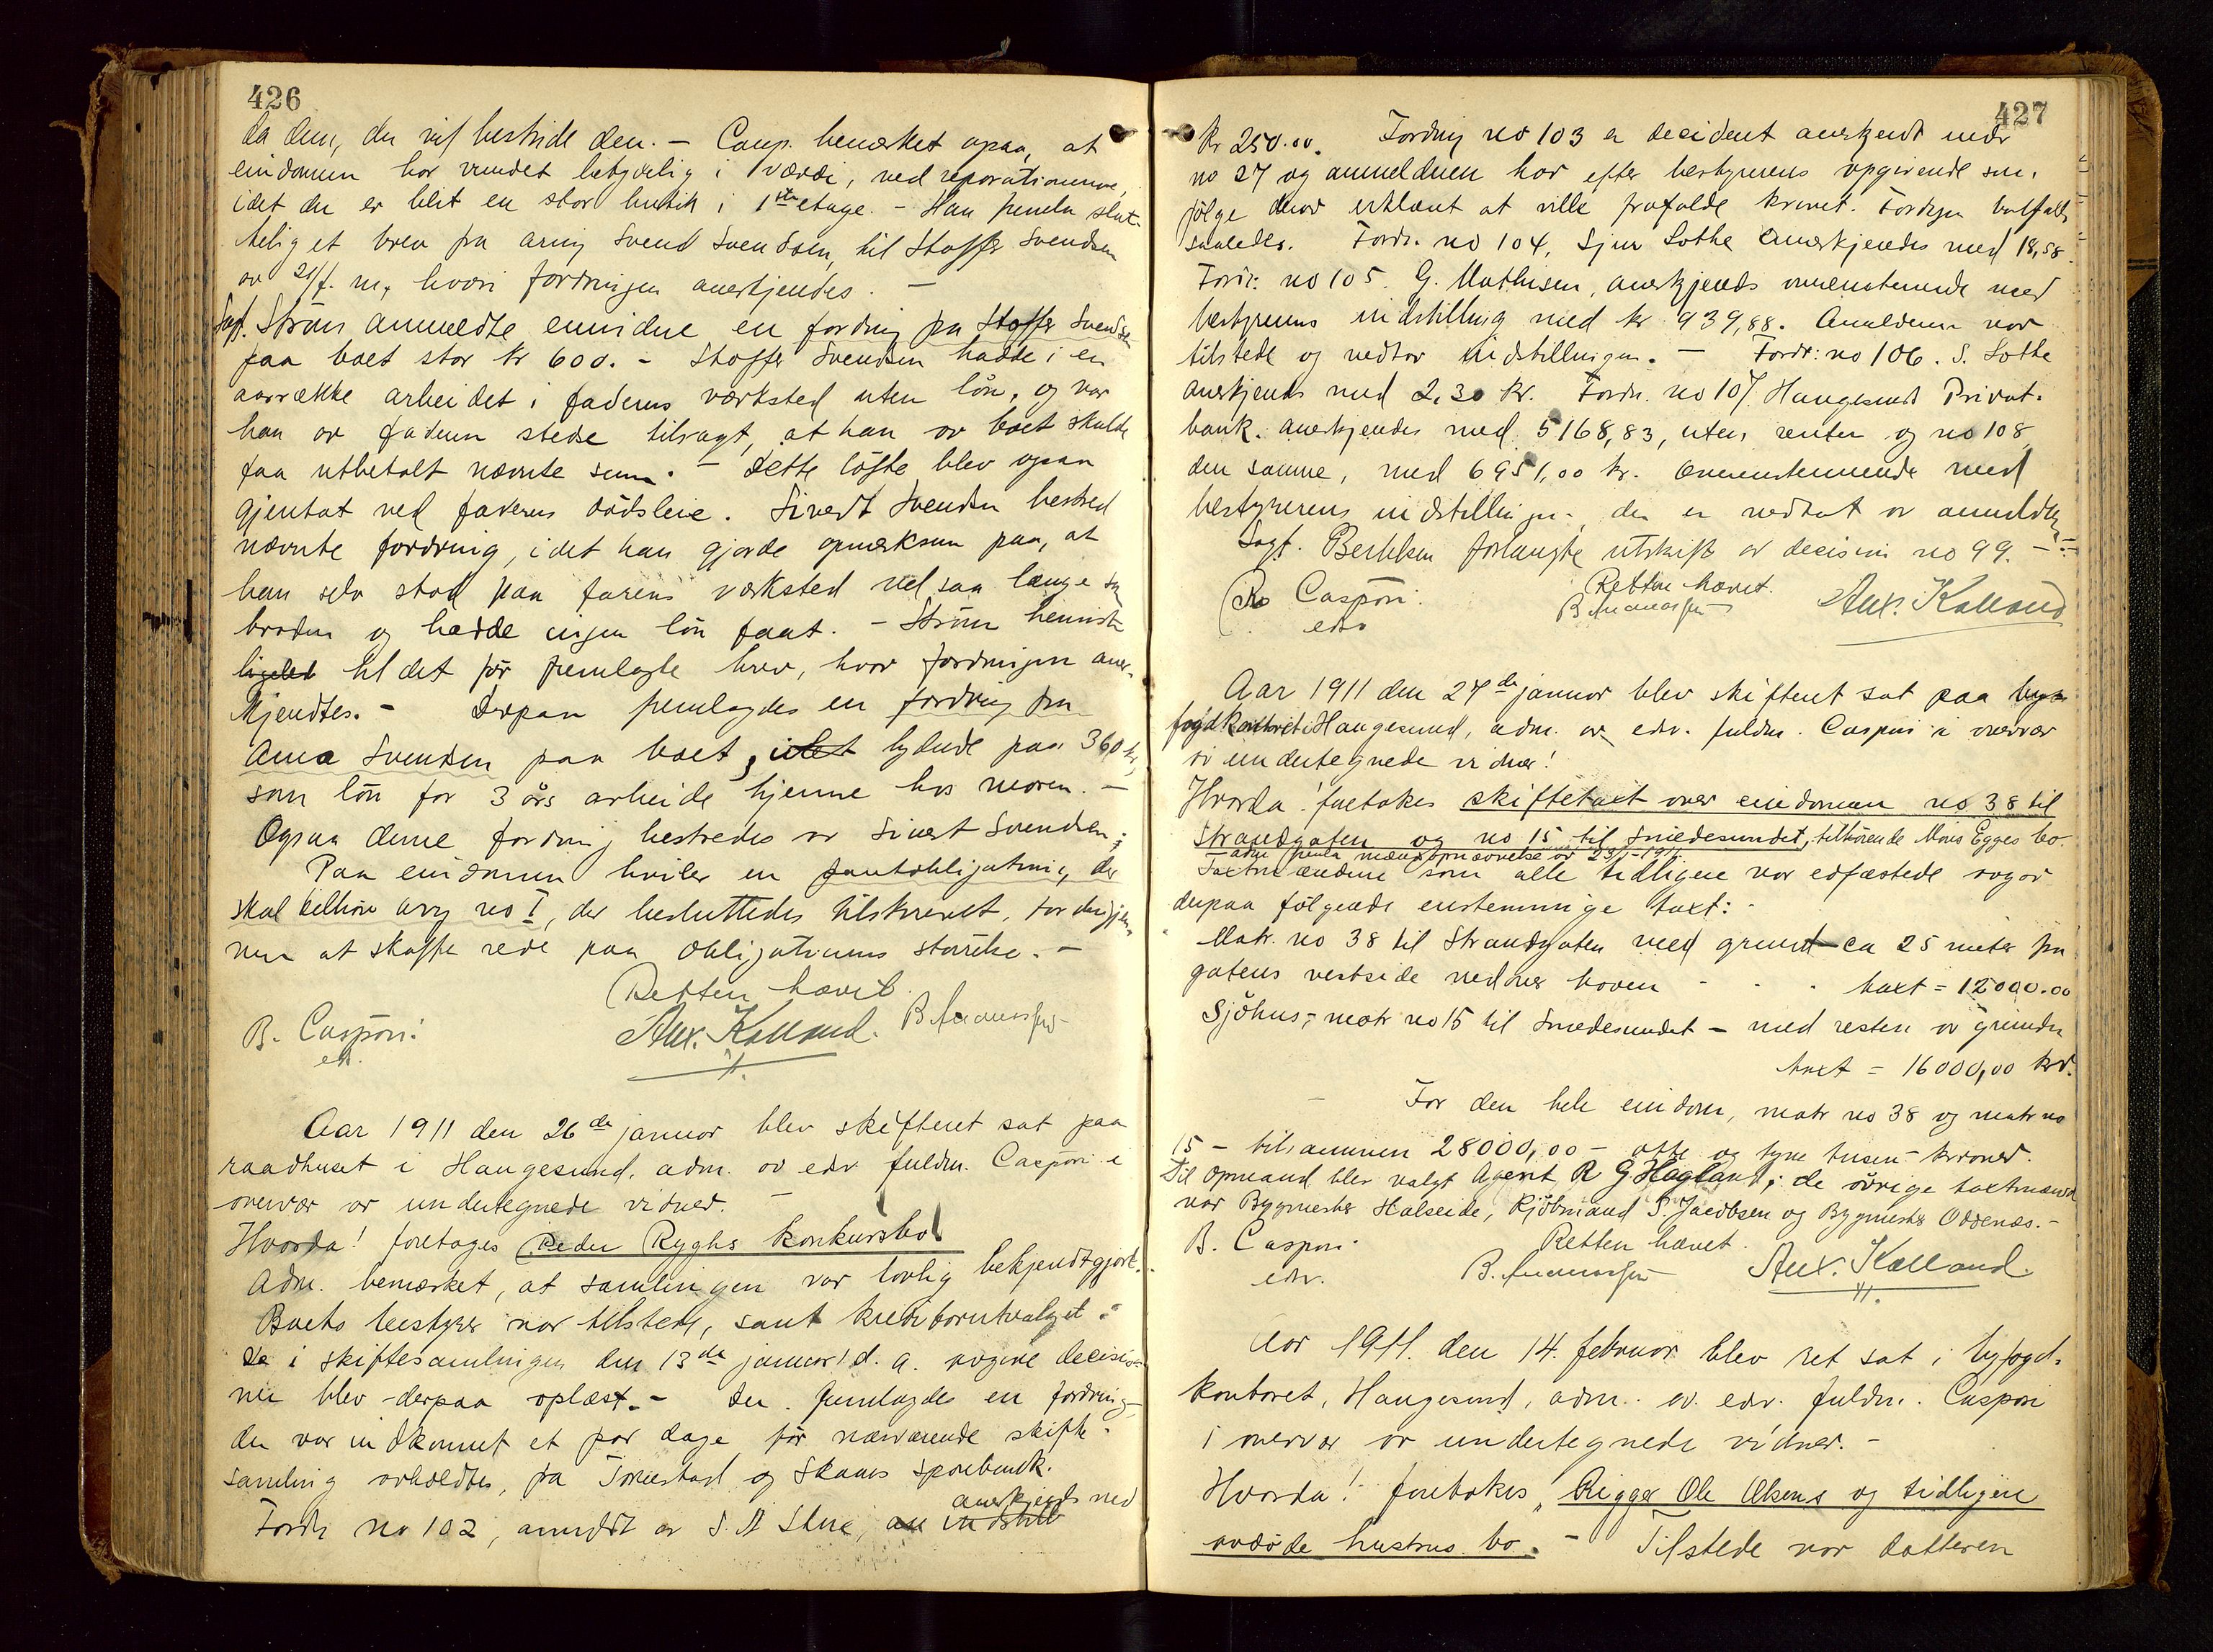 426
da dem, der vil bestride den. - Comp. bemerket ogsaa, at
eiendommen har vundet betydelig i værdi, ved reparationerne,
idet der er blit en stor butik i 1ste etage. - Han freml. slut-
telig et brev fra arving Svend Svendsen, til Stoffer Svendsen
av 21/f. m., hvori fordringen anerkjendes. -
Sagf. Strøm anmeldte envidere en fordring fra Stoffer Svendsen
paa boet stor kr 600. - Stoffer Svendsen hadde i en
aarrække arbeidet i faderens værksted uten løn, og var
han av faderen stedse tilsagt, at han av boet skulde
faa utbetalt nævnte sum. - Dette løfte blev ogsaa
gjentat ved faderens dødsleie. Sivert Svendsen bestred
nævnte fordring, idet han gjorde opmerksom paa, at
han selv stod paa farens verksted vel saa længe som
broderen og hadde ingen løn faat. - Strøm henviste
ligeled til det før fremlagte brev, hvor fordringen aner-
kjendtes. - Derpaa fremlagdes en fordring fra
Anna Svendsen paa boet, idet lydende paa 360 kr,
som løn for 3 års arbeide hjemme hos moren. -
Ogsaa denne fordring bestredes av Sivert Svendsen;
Paa eiendommen hviler en pantobligation, der
skal tilhøre arv. no I, der besluttedes tilskrevet, for derigjen-
nem at skaffe rede paa obligationens størrelse. -
Retten hævet.
B. Caspari
edv.
Anx. Kalland.
B. Amundsen

Aar 1911 den 26de januar blev skifteret sat paa
raadhuset i Haugesund, adm. av edv fuldm. Caspari i
overvær av undertegnede vidner. -
Hvorda! foretages Peder Ryghs konkursbo
Adm. bemærket, at samlingen var lovlig bekjendtgjort.
Boets bestyrer var tilstede, samt kreditorutvalget.
De i skiftesamlingen den 13de januar d. a. avgivne decisio-
ner blev derpaa oplæst. - Der fremlagdes en fordring
der var indkommet et par dage før nærværende skifte-
samling avholdtes, fra Torvestad og Skaares sparebank.
anerkjends med
Fordr no 102, anmeldt av S. A Skre, an indstill
427
kr 250.00. Fordring no 103 er decident anerkjendt under
no 27 og anmelderen har efter bestyrerens opgivende som
følge derav erklært at ville frafalde kravet. Fordringen bortfaldt
saaledes. Fordr. no 104, Sjur Lothe anerkjendes med 18,58.
Fordr: no 105. G. Mathisen, anerkjends overenstemmende med
bestyrerens indstilling med kr 939,88. Anmelderen var
tilstede og vedtar indstillingen. - Fordr: no 106. S. Lothe
anerkjends med 2.30 kr. Fordr. no 107 Haugesunds Privat-
bank. anerkjendes med 5168,83, uten renter og no 108
den samme, med 6951,00 kr. overenstemmende med
bestyrerens indstillinger, der er vedtat av anmelder
Sagf. Berthelsen forlangte utskrift av decision no 99. -
Retten hævet.
Caspari.
edv
B Amundsen
Anx. Kalland

Aar 1911 den 27de januar blev skifteret sat paa by-
fogdkontoret i Haugesund, adm. av edv. fuldm. Caspari i overvær
av undertegnede vidner!
Hvorda! foretokes skiftetaxt over eiendommen no 38 til
Strandgaten og no 15 til Smedesundet, tilhørende Mons Egges bo.
adm freml mændsopnævnelse av 23/1-1911.
Taxtmændene som alle tidligere var edfæstede avgav
derpaa følgende enstemmige taxt:
Matr. no 38 til Strandgaten med grund ca 25 meter fra
gatens vestside nedover haven - taxt = 12000.00
Sjøhus, matr no 15 til Smedesundet - med resten av grunden
taxt = 16000,00 kr.
- For den hele eiendom, matr no 38 og matr no
15 - tilsammen 28000,00 - otte og tyve tusen - kroner.
Til opmand blev valgt Agent R G Hagland; de øvrige taxtmænd
var Bygmester Halseide, Kjøbmand S. Jacobsen og Bygmester Oddenæs. -
Retten hævet.
B. Caspari
edv.
B. Amundsen
Anx. Kalland.

Aar 1911. den 14. februar blev ret sat i byfogd-
kontoret, Haugesund, adm. av. edv. fuldm. Caspari
i overvær av undertegnede vidner. -
Hvorda! foretokes "Rigger Ole Olsens og tidligere
avdøde hustrus bo. - Tilstede var datteren